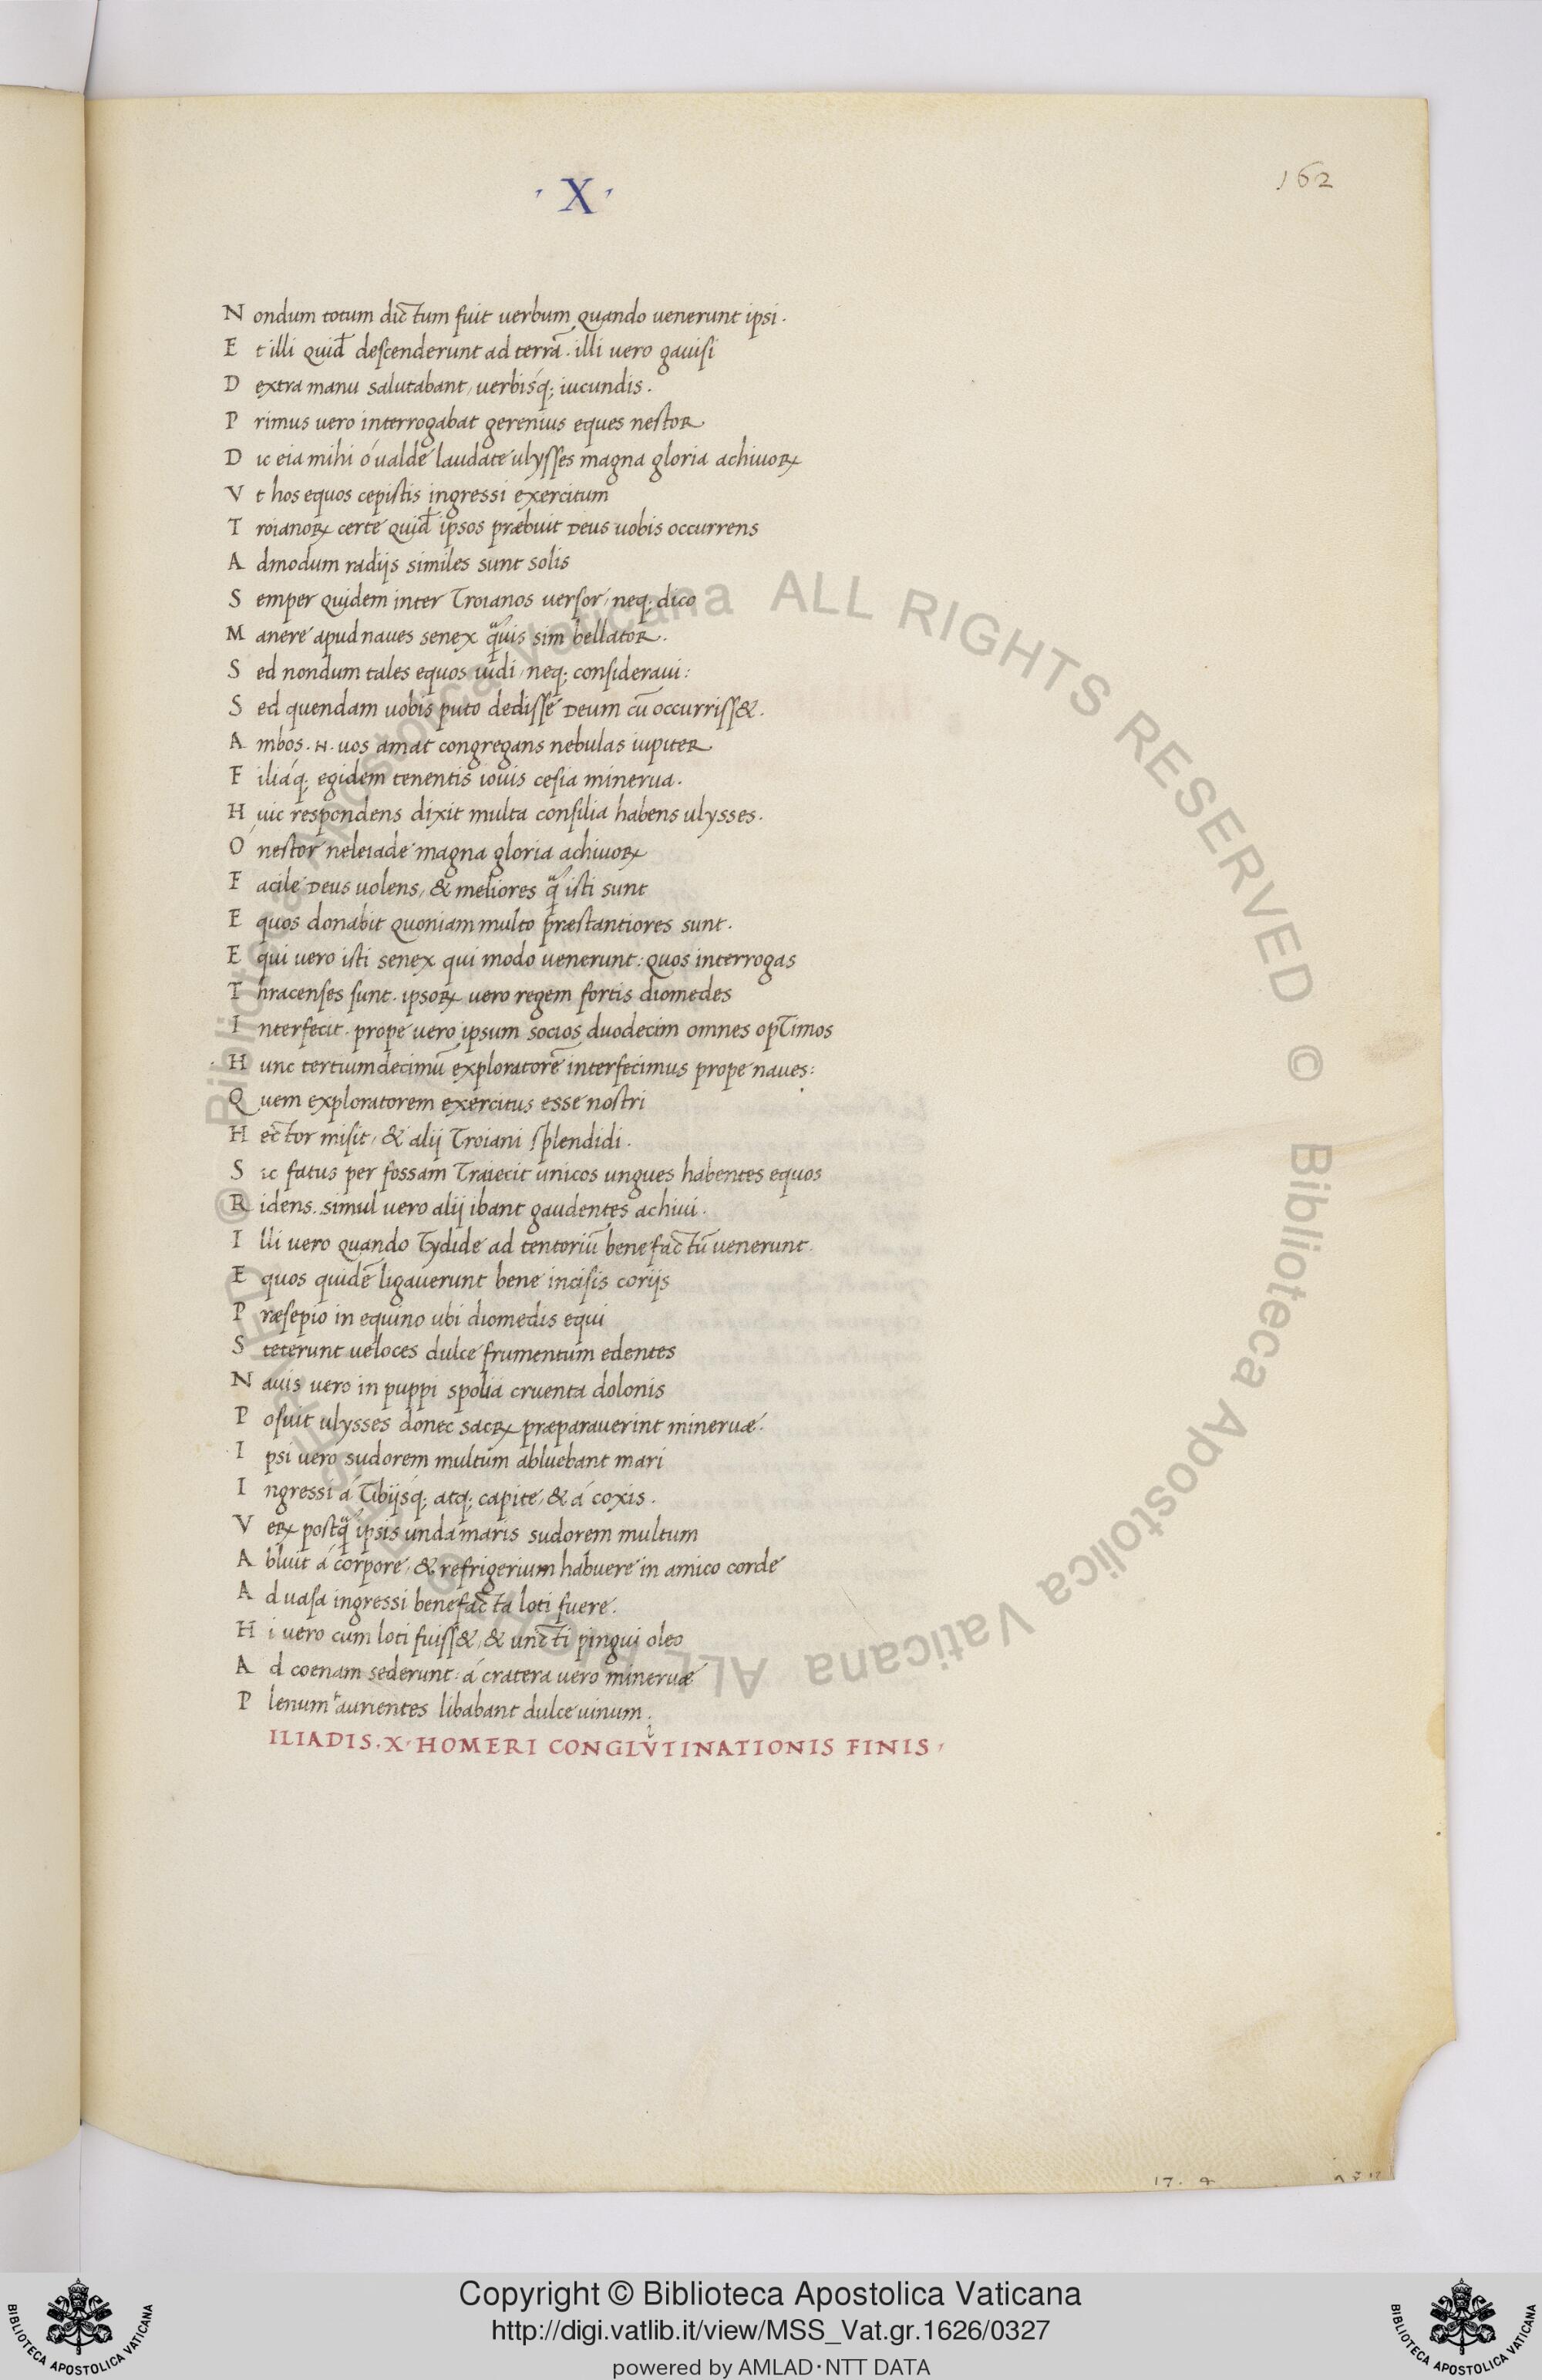 · X ·
162
Nondum totum dictum fuit uerbum quando uenerunt ipsi.
Et illi quid̄ descenderunt ad terrā. illi uero gauisi
Dextra manu salutabant, uerbisq́; iucundis.
Primus uero interrogabat gerenius eques nestor
Dic eia mihi ó ualde laudate ulysses magna gloria achiuoꝝ
Vt hos equos cepistis ingressi exercitum
Troianoꝝ certe quid̄ ipsos præbuit Deus uobis occurrens
Admodum radijs similes sunt solis
Semper quidem inter Troianos uersor, neq; dico
Manere apud naues senex q̃uis sim bellator.
Sed nondum tales equos uidi, neq; consideraui:
Sed quendam uobis puto dedisse Deum cū occurriss&.
Ambos .N. uos amat congregans nebulas iupiter
Filiáq; egidem tenentis iouis cesia minerua.
Huic respondens dixit multa consilia habens ulysses.
Ó nestor neleiade magna gloria achiuoꝝ
Facile Deus uolens, & meliores q̃ isti sunt
Equos donabit quoniam multo præstantiores sunt.
Equi uero isti senex qui modo uenerunt: quos interrogas
Thracenses sunt. ipsoꝝ uero regem fortis diomedes
Interfecit. prope uero ipsum socios duodecim omnes opTimos
Hunc tertiumdecimū exploratorē interfecimus prope naues:
Quem exploratorem exercitus esse nostri
Hector misit, & alij Troiani splendidi.
Sic fatus per fossam Traiecit unicos ungues habentes equos
Ridens. simul uero alij ibant gaudentes achiui.
Illi uero quando Tydide ad tentoriū bene factū uenerunt.
Equos quidē ligauerunt bene incisis corijs
Præsepio in equino ubi diomedis equi
Steterunt ueloces dulce frumentum edentes
Nauis uero in puppi spolia cruenta dolonis
Posuit ulysses donec sacꝝ præparauerint mineruæ.
Ipsi uero sudorem multum abluebant mari
Ingressi á Tibijsq́; atq; capite, & á coxis.
Veꝝ postq̃ ipsis unda maris sudorem multum
Abluit á corpore, & refrigerium habuere in amico corde
Ad uasa ingressi benefacta loti fuere.
Hi uero cum loti fuiss&, & uncti pingui oleo
Ad coenam sederunt. á cratera uero mineruæ
Plenum aurientes libabant dulce uinum.
ILIADIS. X. HOMERI CONGLVTINATIONIS FINIS,
17. 9
© Biblioteca Apostolica Vaticana ALL RIGHTS RESERVED © Biblioteca Apostolica Vaticana ALL RIGHTS RESERVED
Copyright © Biblioteca Apostolica Vaticana
http://digi.vatlib.it/view/MSS_Vat.gr.1626/0327
powered by AMLAD·NTT DATA
BIBLIOTECA APOSTOLICA VATICANA
BIBLIOTECA APOSTOLICA VATICANA